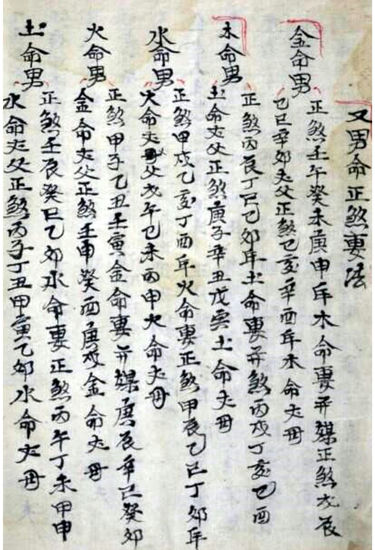 又男命正煞妻法
金命男 正煞壬午癸未庚申年木命妻并媒正煞戊辰
己巳辛卯夫父正煞己亥辛酉年木命夫母
木命男 正煞丙辰丁巳己卯年土命妻并煞丙戌丁亥己酉
土命夫父正煞庚子辛丑戊寅土命夫母
水命男 正煞甲戌乙亥丁酉年火命妻正煞甲辰乙巳丁卯年
火命夫父戊午己未丙申火命夫母
火命男 正煞甲子乙丑壬寅金命妻并媒庚辰辛巳癸卯
金命夫父正煞壬申癸酉庚戌金命夫母
土命男 正煞壬辰癸巳乙卯水命妻正煞丙午丁未甲申
水命夫父正煞丙子丁丑甲寅乙卯水命夫母